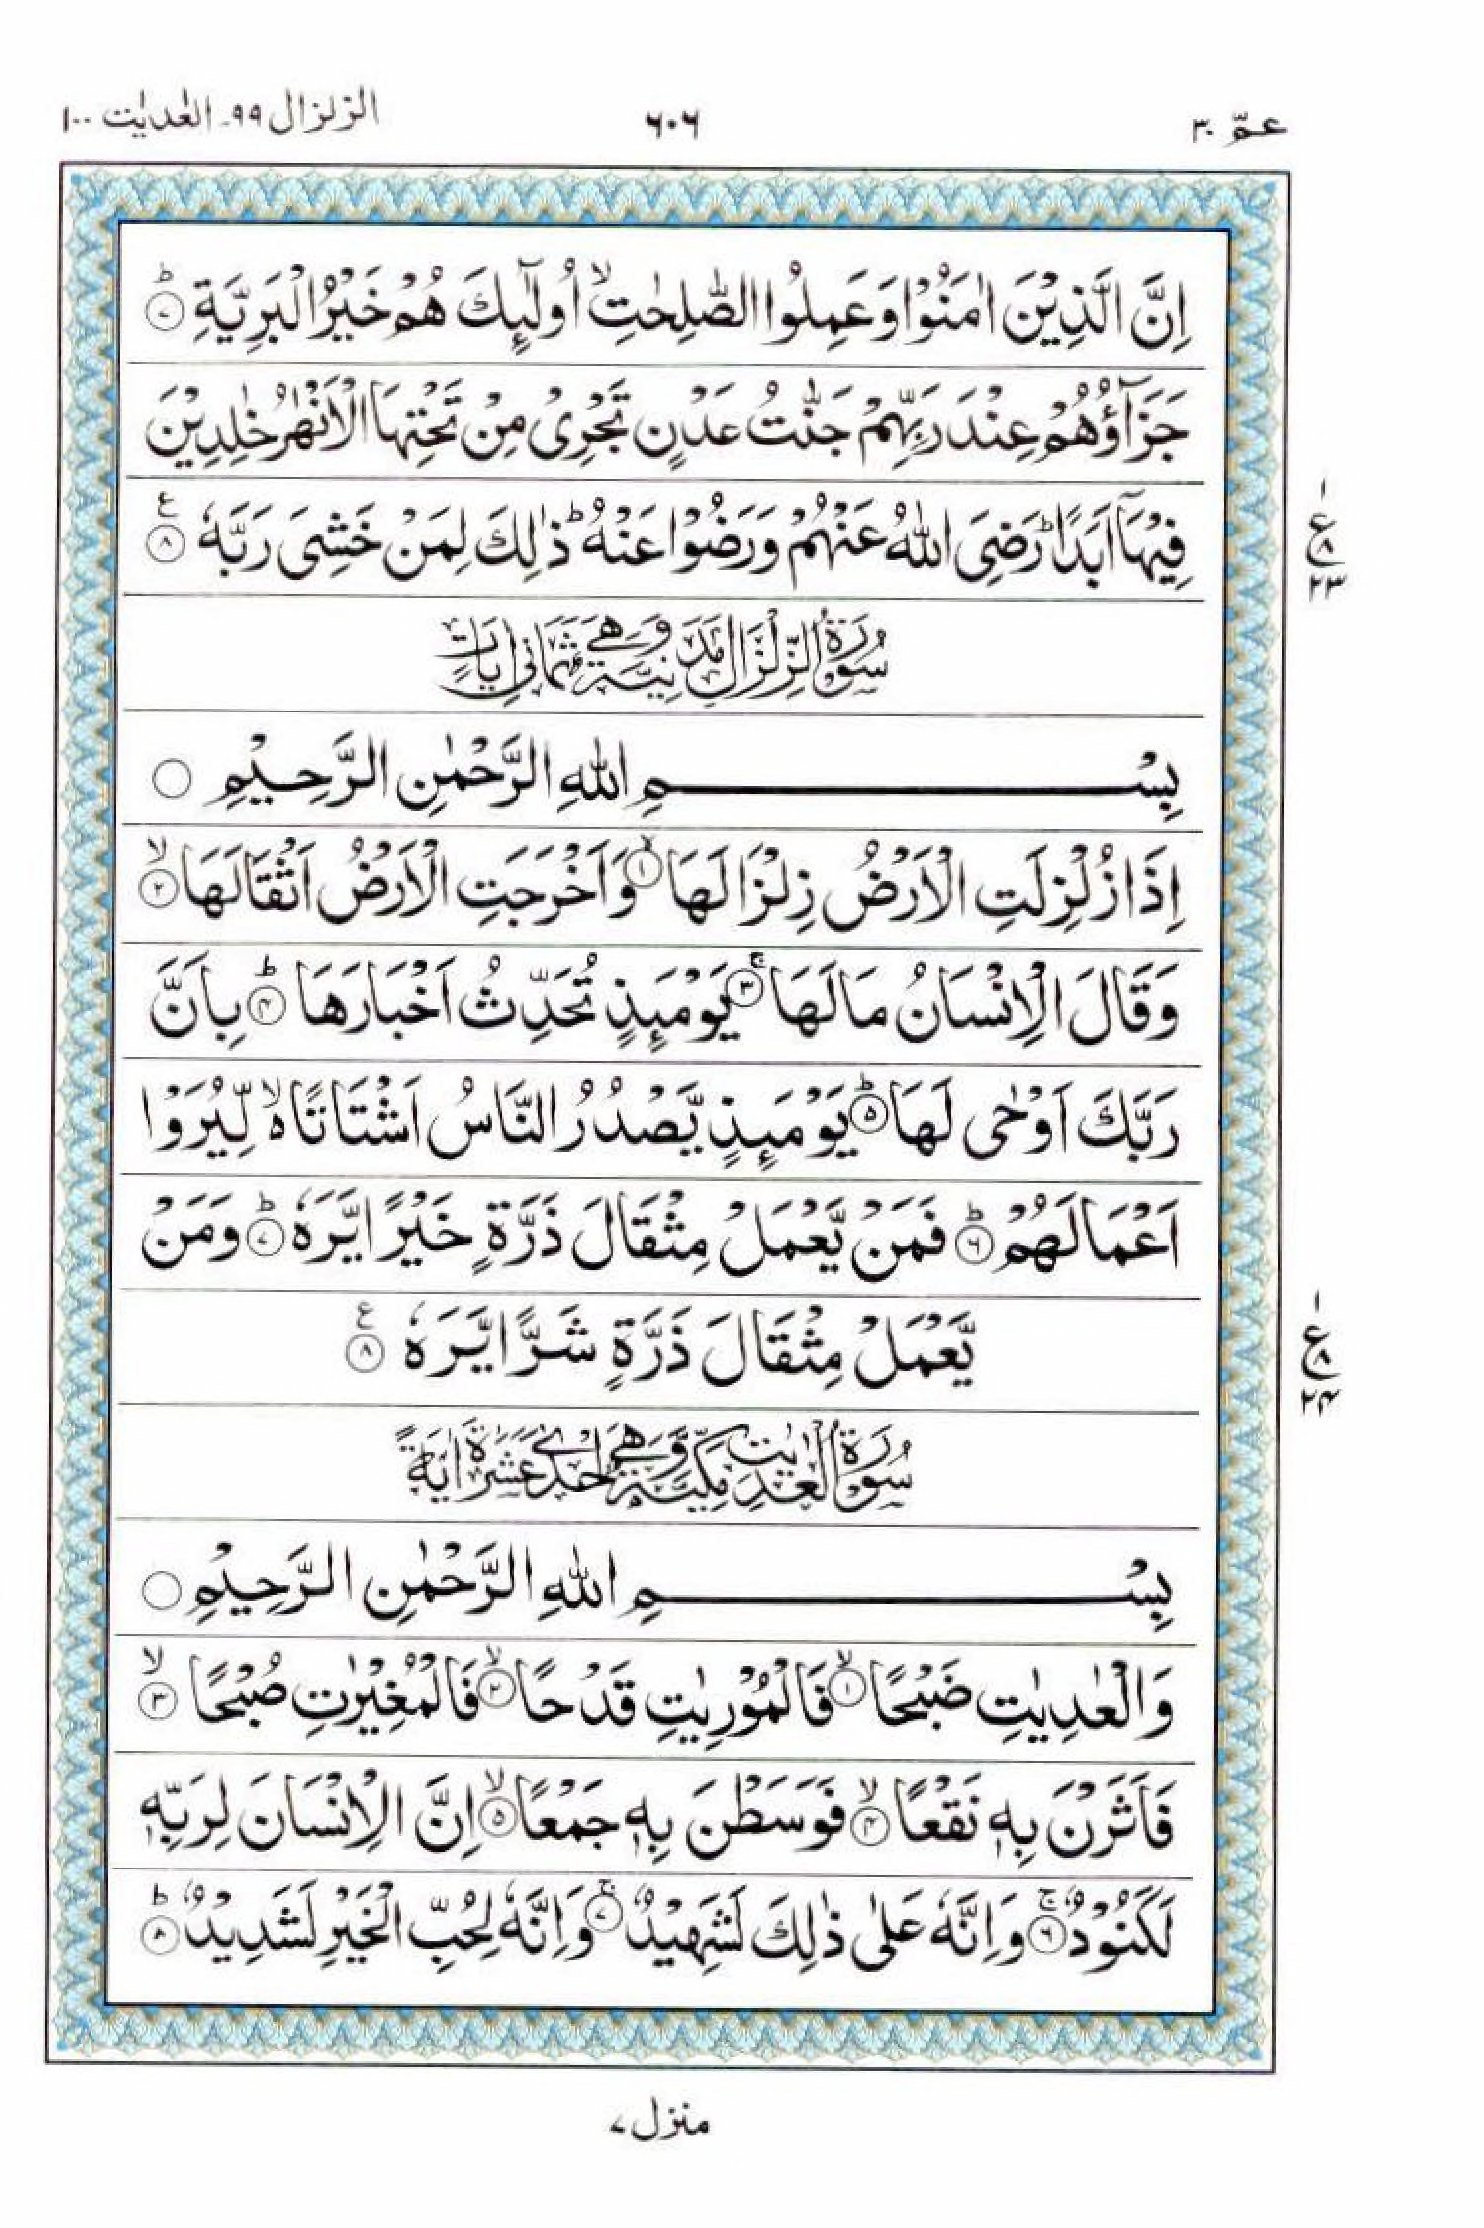 عمّ ٣٠
٦٠٦
الزلزال ٩٩۔ العٰدیٰت ١٠٠
اِنَّ الَّذِیْنَ اٰمَنُوْا وَعَمِلُوا الصّٰلِحٰتِ ۙ اُولٰٓئِكَ هُمْ خَیْرُ الْبَرِیَّةِ ؕ ﴿۷﴾
جَزَآؤُهُمْ عِنْدَ رَبِّهِمْ جَنّٰتُ عَدْنٍ تَجْرِیْ مِنْ تَحْتِهَا الْاَنْهٰرُ خٰلِدِیْنَ
فِیْهَاۤ اَبَدًا ؕ رَضِیَ اللّٰهُ عَنْهُمْ وَرَضُوْا عَنْهُ ؕ ذٰلِكَ لِمَنْ خَشِیَ رَبَّهٗ ﴿۸﴾ ع
١
ع
٨
٢٣
سُوْرَةُ الزِّلْزَالِ مَدَنِیَّةٌ وَّهِیَ ثَمَانِیْ اٰیَاتٍ
بِسْمِ اللّٰهِ الرَّحْمٰنِ الرَّحِیْمِ
اِذَا زُلْزِلَتِ الْاَرْضُ زِلْزَالَهَا ۙ ﴿۱﴾ وَاَخْرَجَتِ الْاَرْضُ اَثْقَالَهَا ۙ ﴿۲﴾
وَقَالَ الْاِنْسَانُ مَا لَهَا ۚ ﴿۳﴾ یَوْمَئِذٍ تُحَدِّثُ اَخْبَارَهَا ؕ ﴿۴﴾ بِاَنَّ
رَبَّكَ اَوْحٰی لَهَا ؕ ﴿۵﴾ یَوْمَئِذٍ یَّصْدُرُ النَّاسُ اَشْتَاتًا ۙ۬ لِّیُرَوْا
اَعْمَالَهُمْ ؕ ﴿۶﴾ فَمَنْ یَّعْمَلْ مِثْقَالَ ذَرَّةٍ خَیْرًا یَّرَهٗ ؕ ﴿۷﴾ وَمَنْ
یَّعْمَلْ مِثْقَالَ ذَرَّةٍ شَرًّا یَّرَهٗ ﴿۸﴾ ع
١
ع
٨
٢۴
سُوْرَةُ الْعٰدِیٰتِ مَكِّیَّةٌ وَّهِیَ اِحْدٰی عَشْرَةَ اٰیَةً
بِسْمِ اللّٰهِ الرَّحْمٰنِ الرَّحِیْمِ
وَالْعٰدِیٰتِ ضَبْحًا ۙ ﴿۱﴾ فَالْمُوْرِیٰتِ قَدْحًا ۙ ﴿۲﴾ فَالْمُغِیْرٰتِ صُبْحًا ۙ ﴿۳﴾
فَاَثَرْنَ بِهٖ نَقْعًا ۙ ﴿۴﴾ فَوَسَطْنَ بِهٖ جَمْعًا ۙ ﴿۵﴾ اِنَّ الْاِنْسَانَ لِرَبِّهٖ
لَكَنُوْدٌ ۚ ﴿۶﴾ وَاِنَّهٗ عَلٰی ذٰلِكَ لَشَهِیْدٌ ۚ ﴿۷﴾ وَاِنَّهٗ لِحُبِّ الْخَیْرِ لَشَدِیْدٌ ؕ ﴿۸﴾
منزل ۷